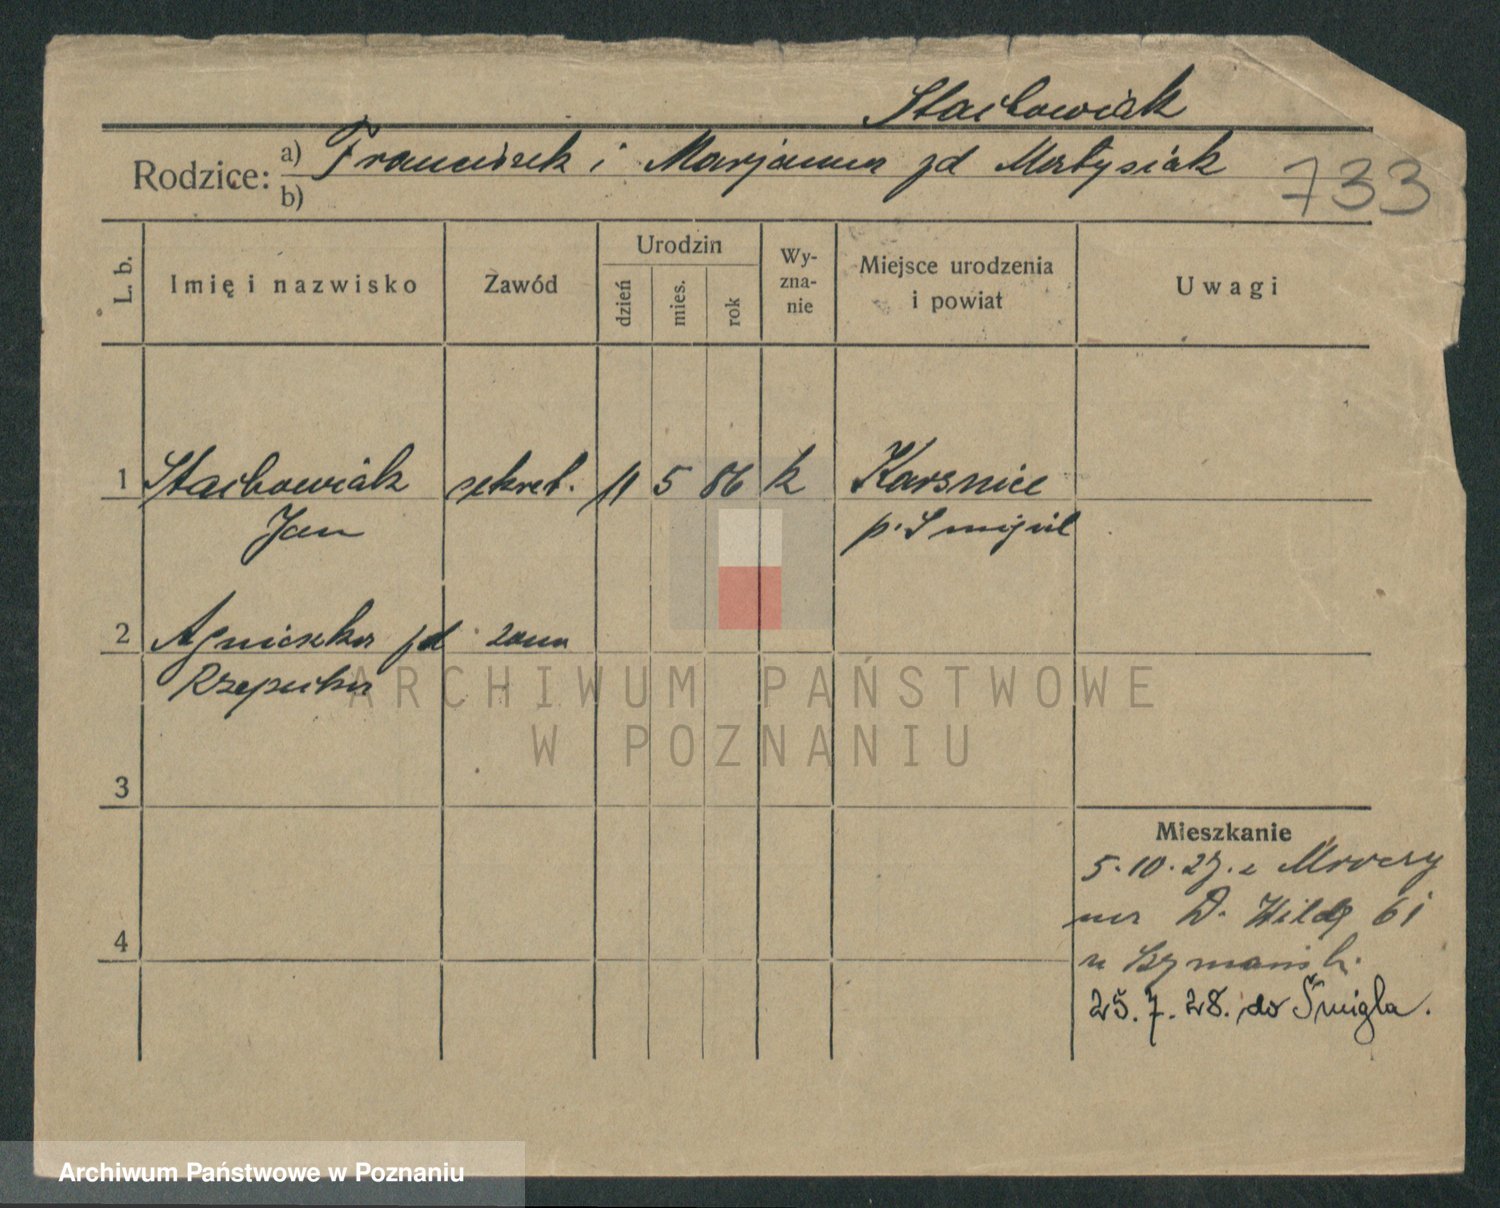 Stachowiak
Rodzice: a) Franciszek i Marjanna zd Matysiak
b)
733
L. b.
Imię i nazwisko
Zawód
Urodzin
dzień
mies.
rok
Wy-
zna-
nie
Miejsce urodzenia
i powiat
Uwagi
1 Stachowiak sekret. 11 5 86 k Karśnice
Jan p. Śmigiel
2 Agnieszka zd żona
Rzepecka
ARCHIWUM PAŃSTWOWE
W POZNANIU
3
Mieszkanie
5.10.27. z Mroczy
na D. Wildę 61
4
u Szymańsk.
25.7.28. do Śmigla.
Archiwum Państwowe w Poznaniu